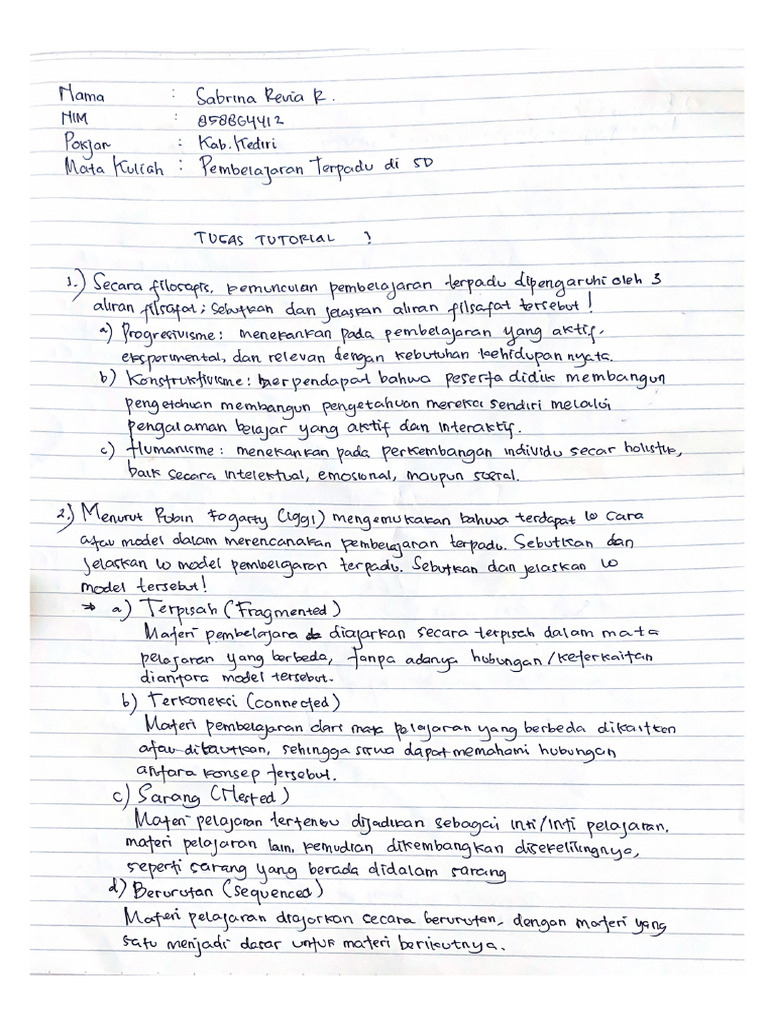 Nama : Sabrina Revia R.
NIM : 858864412
Pokjar : Kab. Kediri
Mata Kuliah : Pembelajaran Terpadu di SD
TUGAS TUTORIAL 1
1.) Secara filosofis, kemunculan pembelajaran terpadu dipengaruhi oleh 3
aliran filsafat; sebutkan dan jelaskan aliran filsafat tersebut!
a) Progresivisme : menekankan pada pembelajaran yang aktif,
eksperimental, dan relevan dengan kebutuhan kehidupan nyata.
b) Konstruktivisme : berpendapat bahwa peserta didik membangun
pengetahuan membangun pengetahuan mereka sendiri melalui
pengalaman belajar yang aktif dan interaktif.
c) Humanisme : menekankan pada perkembangan individu secar holistik,
baik secara intelektual, emosional, maupun sosial.
2.) Menurut Robin Fogarty (1991) mengemukakan bahwa terdapat 10 cara
atau model dalam merencanakan pembelajaran terpadu. Sebutkan dan
jelaskan 10 model pembelajaran terpadu. Sebutkan dan jelaskan 10
model tersebut!
→ a) Terpisah (Fragmented)
Materi pembelajara diajarkan secara terpisah dalam mata
pelajaran yang berbeda, tanpa adanya hubungan/keterkaitan
diantara model tersebut.
b) Terkoneksi (connected)
Materi pembelajaran dari mata pelajaran yang berbeda dikaitkan
atau ditautkan, sehingga siswa dapat memahami hubungan
antara konsep tersebut.
c) Sarang (Nested)
Materi pelajaran tertentu dijadikan sebagai inti/inti pelajaran,
materi pelajaran lain, kemudian dikembangkan disekelilingnya,
seperti sarang yang berada didalam sarang
d) Berurutan (sequenced)
Materi pelajaran diajarkan secara berurutan, dengan materi yang
satu menjadi dasar untuk materi berikutnya.